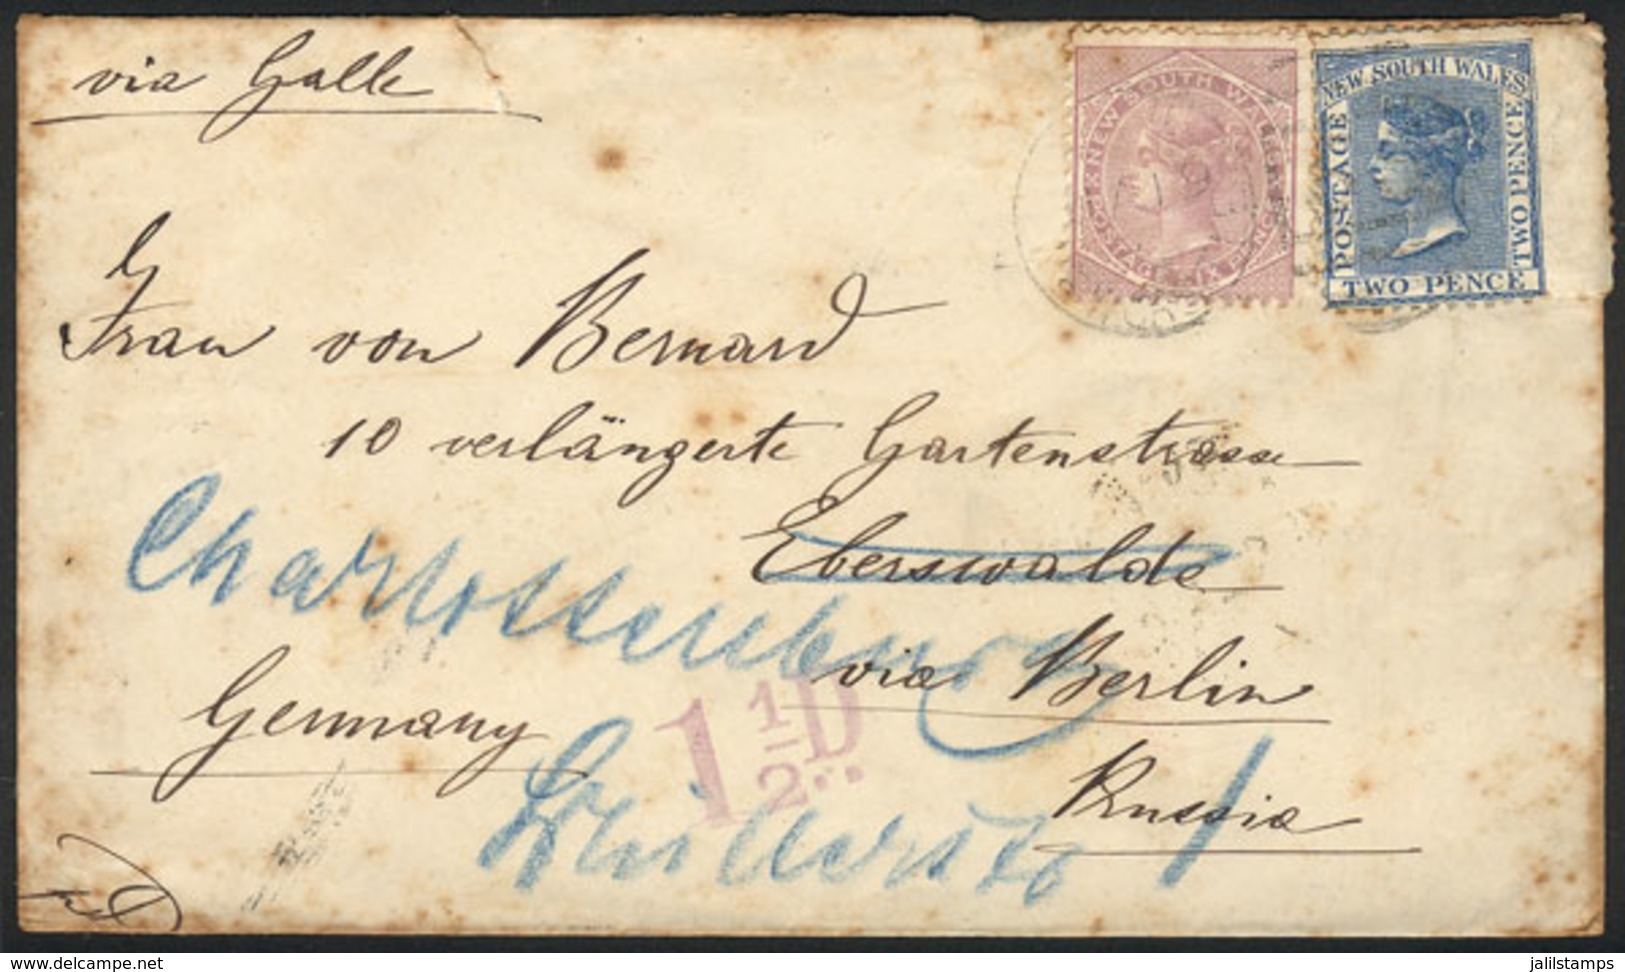 via Galle
NEW SOUTH WALES
POSTAGE SIX PENCE
NEW SOUTH WALES
POSTAGE
TWO PENCE
TWO PENCE
Frau von Bernard
10 verlängerte Gartenstrasse
Eberswalde
Charlottenburg
via Berlin
1 1/2 D
Germany
Russia
jalilstamps
delcampe.net